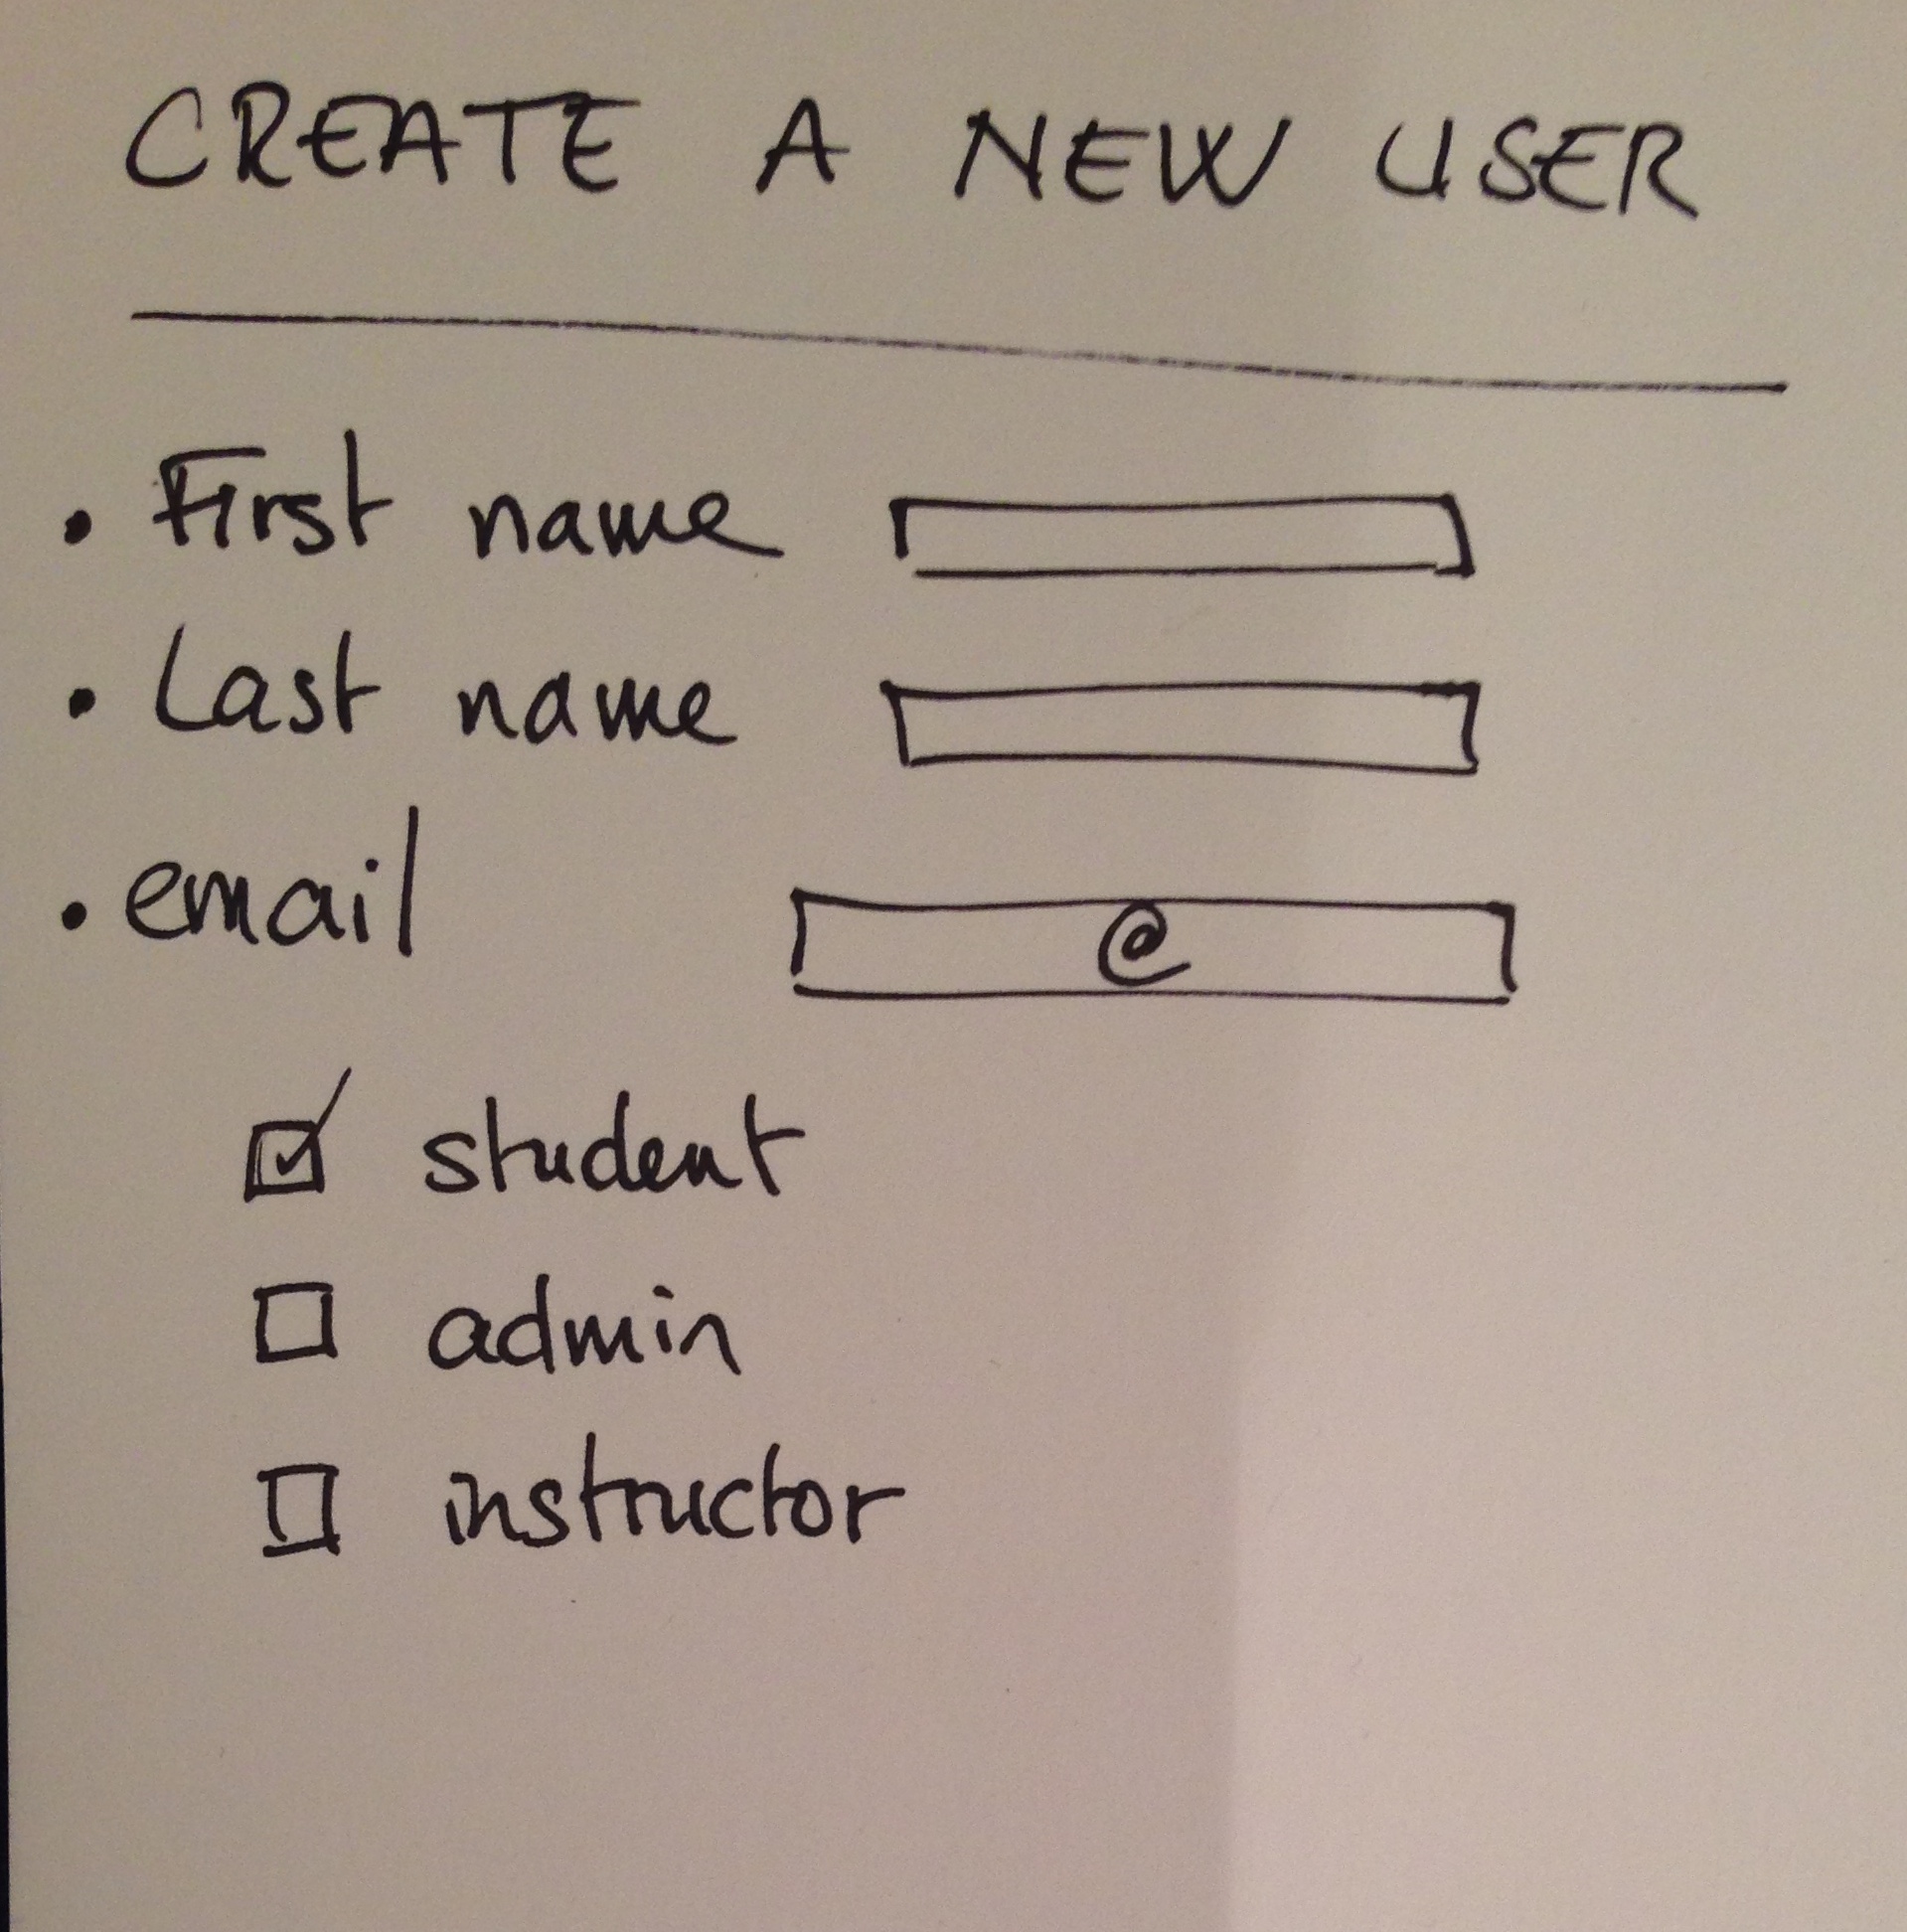 CREATE A NEW USER
• First name
• Last name
• email @
☑ student
☐ admin
☐ instructor